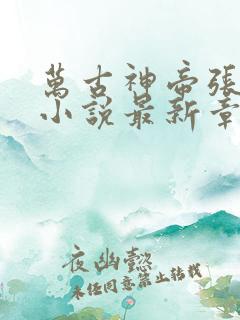 萬古神帝張
小說最新章
夜幽懿
未经同意禁止转载